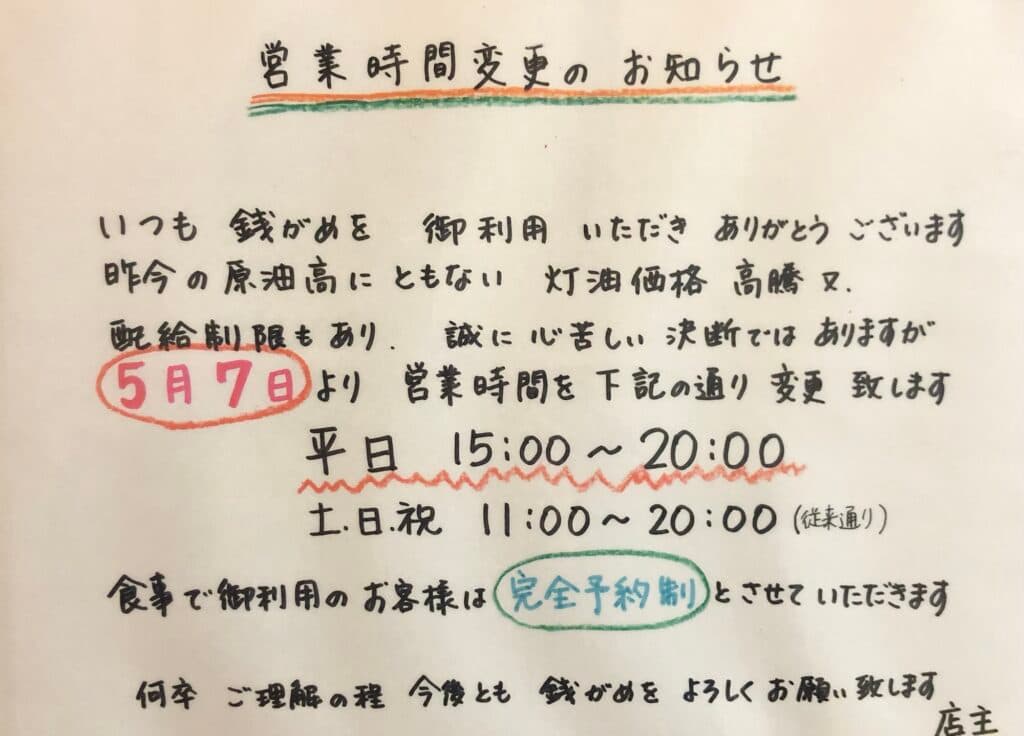 営業時間変更のお知らせ
いつも 銭がめを 御利用 いただき ありがとう ございます
昨今の原油高に ともない 灯油価格 高騰 又.
配給制限もあり. 誠に心苦しい決断では ありますが
5月7日より 営業時間を下記の通り変更致します
平日 15:00～20:00
土.日.祝 11:00～20:00(従来通り)
食事で御利用のお客様は完全予約制とさせていただきます
何卒 ご理解の程 今後とも 銭がめを よろしくお願い致します
店主